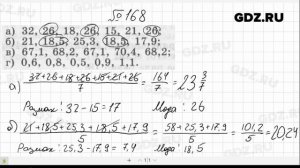 GDZ.RU
№168
а) 32, 26, 18, 26, 15, 21, 26;
б) 21, 18,5, 25,3, 18,5, 17,9;
в) 67,1, 68,2, 67,1, 70,4, 68,2;
г) 0,6, 0,8, 0,5, 0,9, 1,1.
а) 32+26+18+26+15+21+26/7 = 164/7 = 23 3/7
Размах: 32-15=17 Мода: 26
б) 21+18,5+25,3+18,5+17,9/5 = 58+25,3+17,9/5 = 101,2/5 = 20,24
Размах: 25,3-17,9=7,4 Мода: 18,5